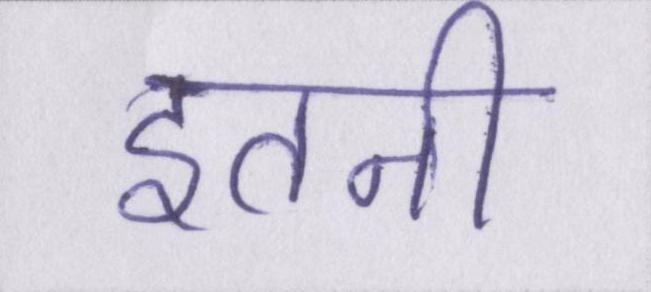 इतनी